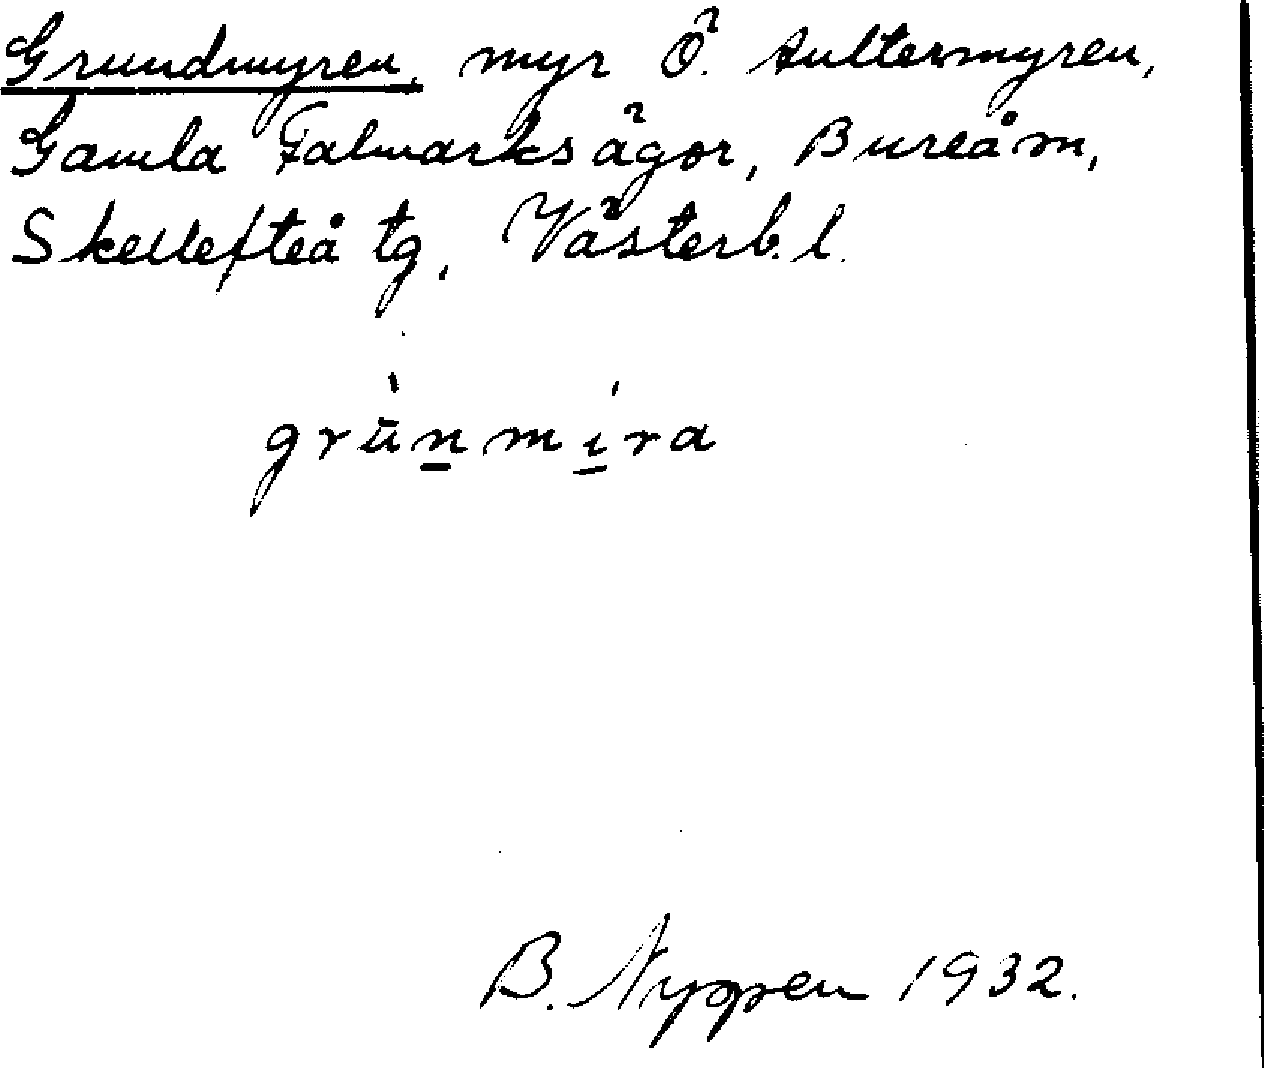 Grundmyren, myr Ö. Aultermyren,
Gamla Falmarksägor, Bureå sn,
Skellefteå tg, Västerb. l.
grùnmíra
B. Nygren 1932.